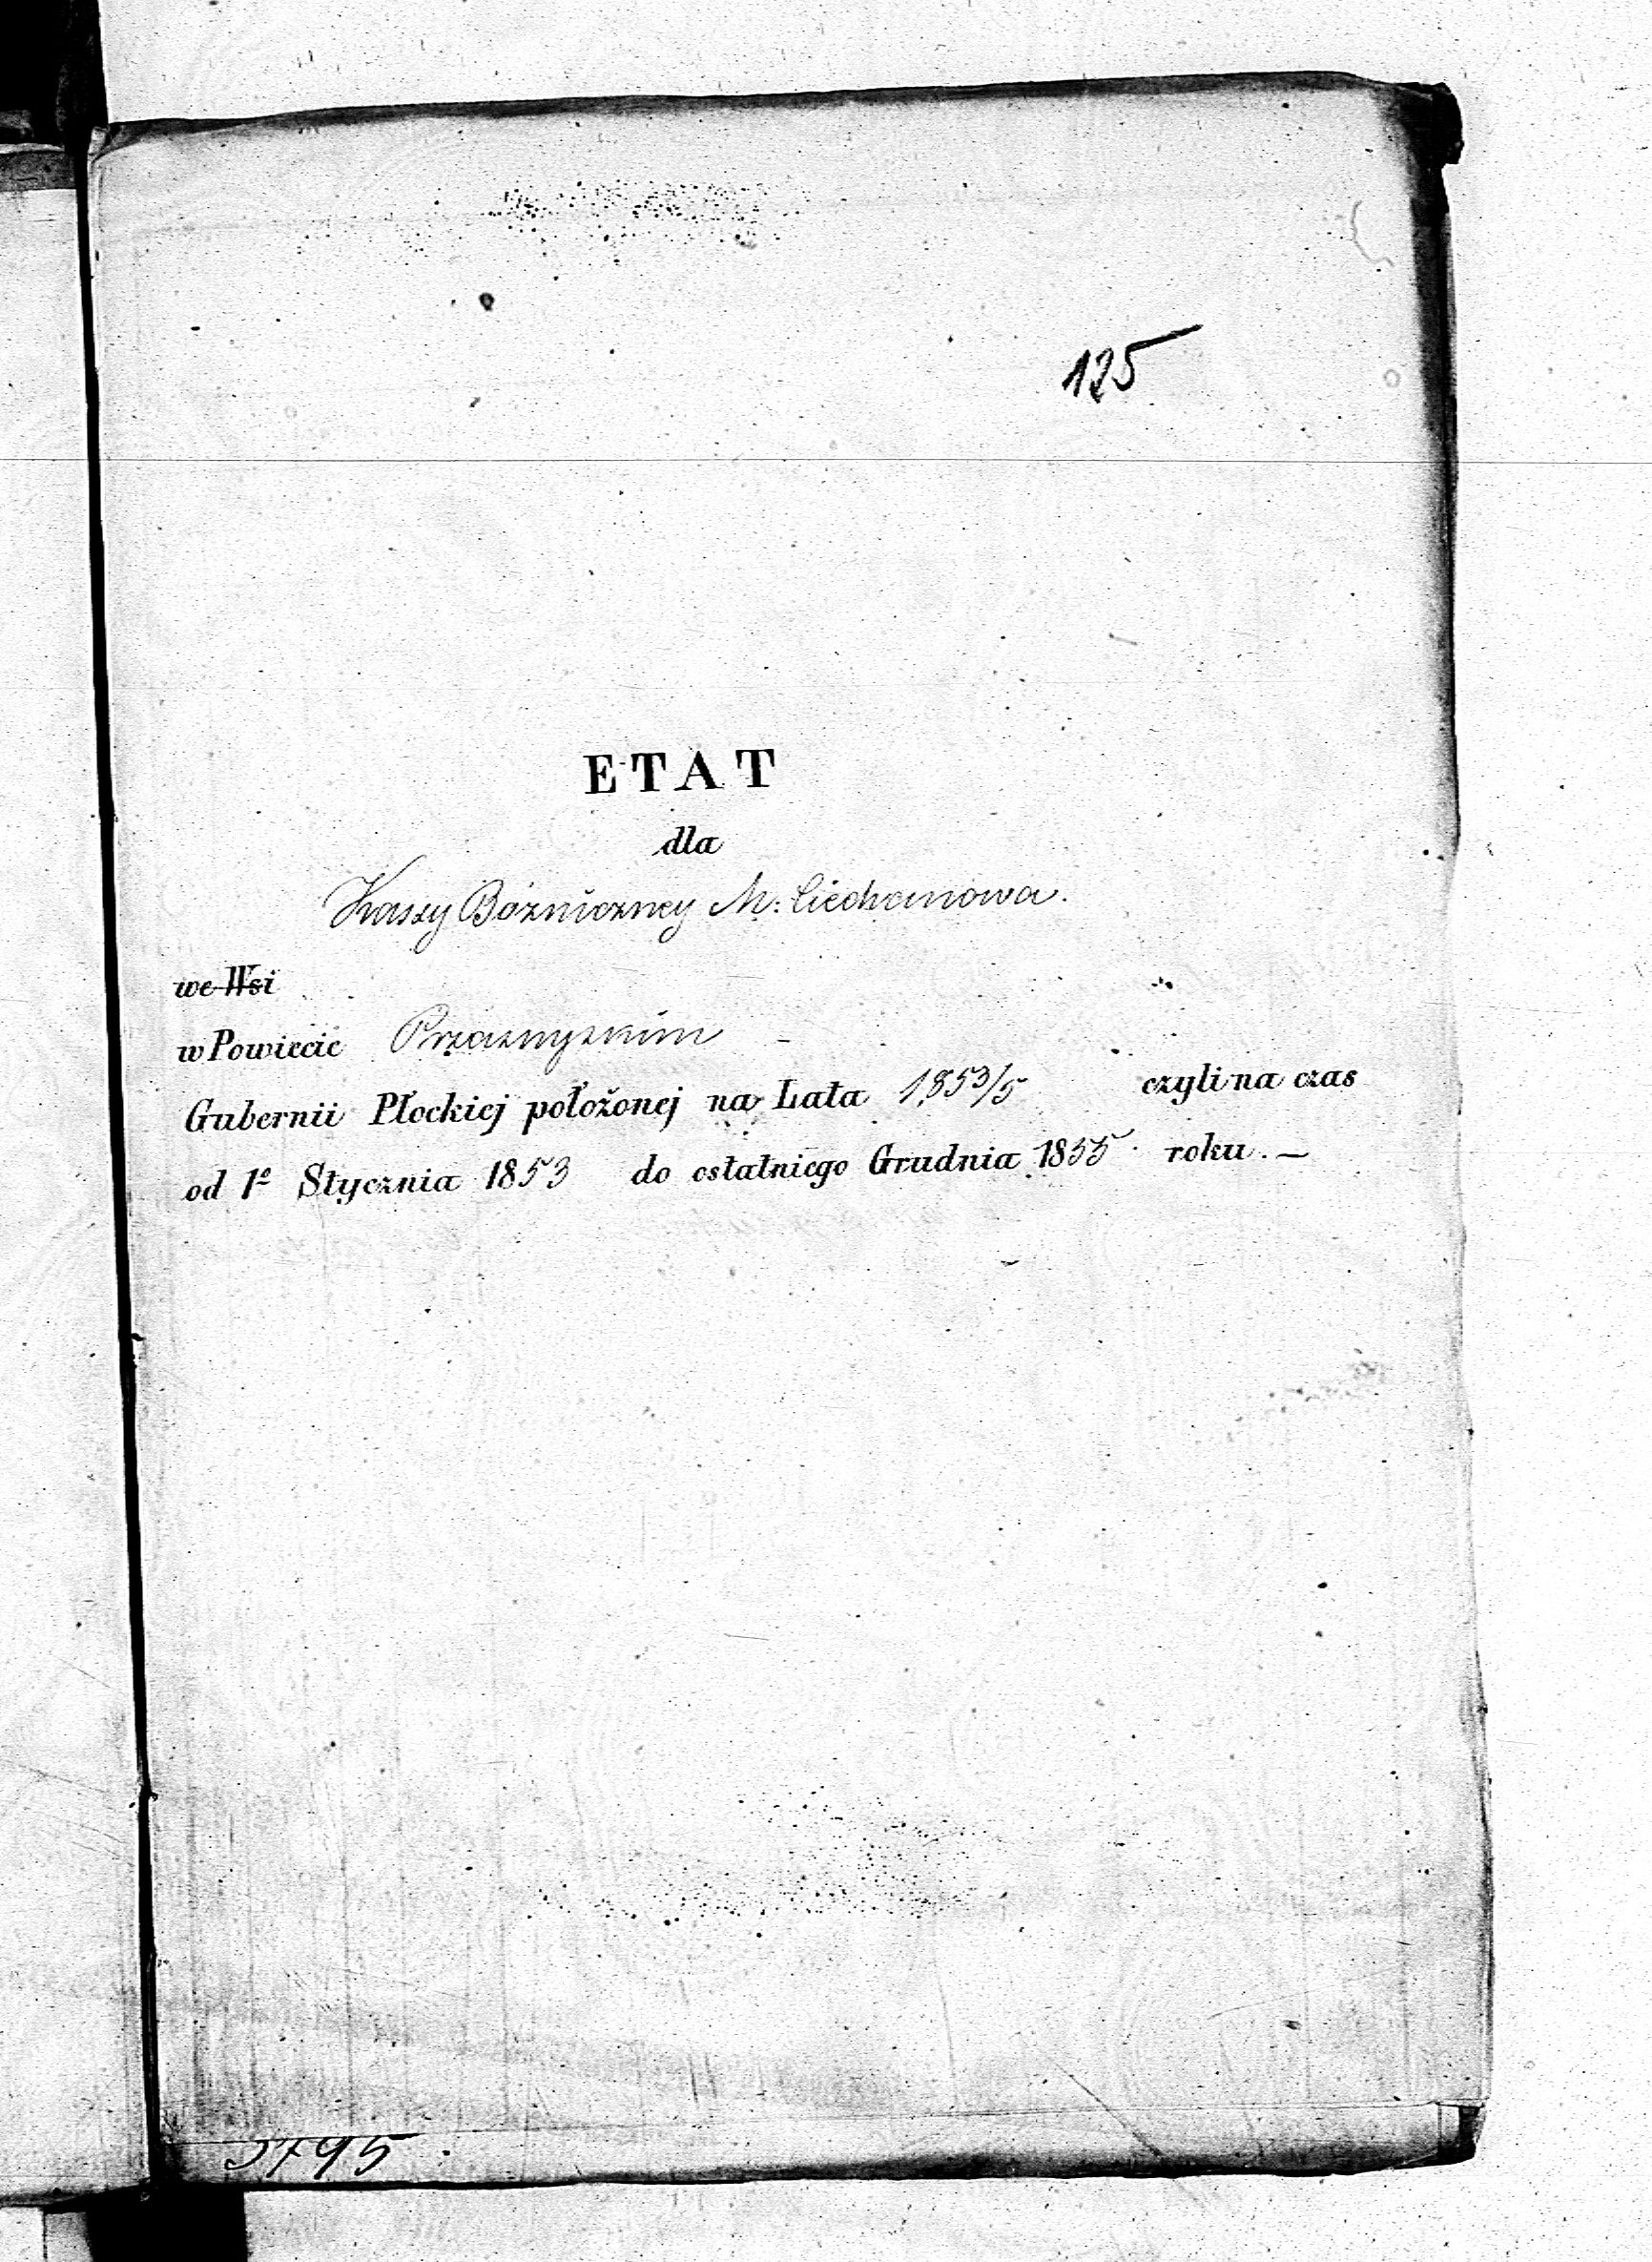 125
ETAT
dla
Kassy Bóźniczney M: Ciechanowa.
we Wsi
w Powiecie Przasnyskim -
Gubernii Płockiej położonej na Lata 1853/5 czyli na czas
od 1º Stycznia 1853 do ostatniego Grudnia 1855 roku. —